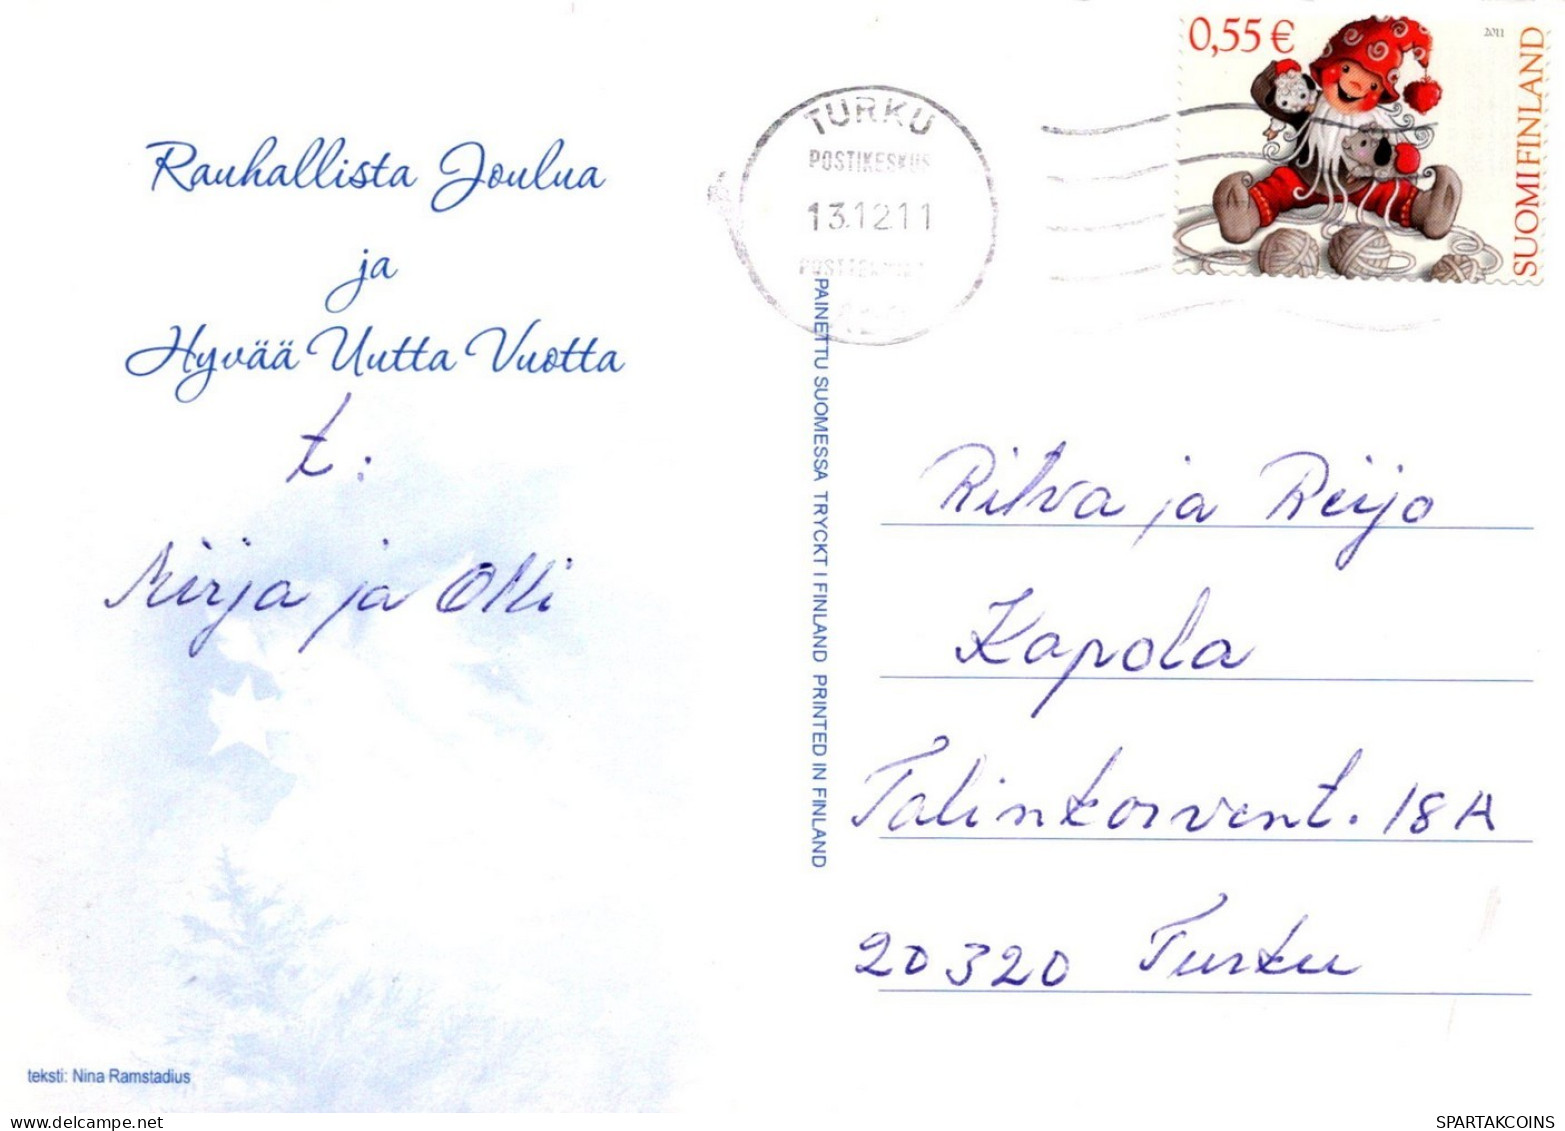 0,55 €
2011
SUOMI FINLAND
TURKU
POSTIKESKUS
13.12.11
Rauhallista Joulua
ja
Hyvää Uutta Vuotta
t:
Mirja ja Olli
teksti: Nina Ramstadius
PAINETTU SUOMESSA TRYCKT I FINLAND PRINTED IN FINLAND
Ritva ja Reijo
Kapola
Talinkorvent. 18 A
20320 Turku
SPARTAKCOINS